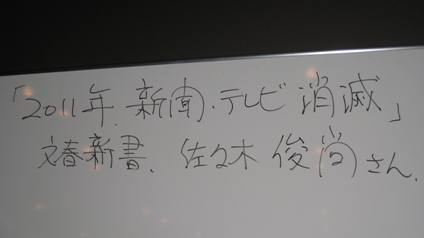 「2011年.新聞・テレビ消滅」
文春新書、佐々木俊尚さん.